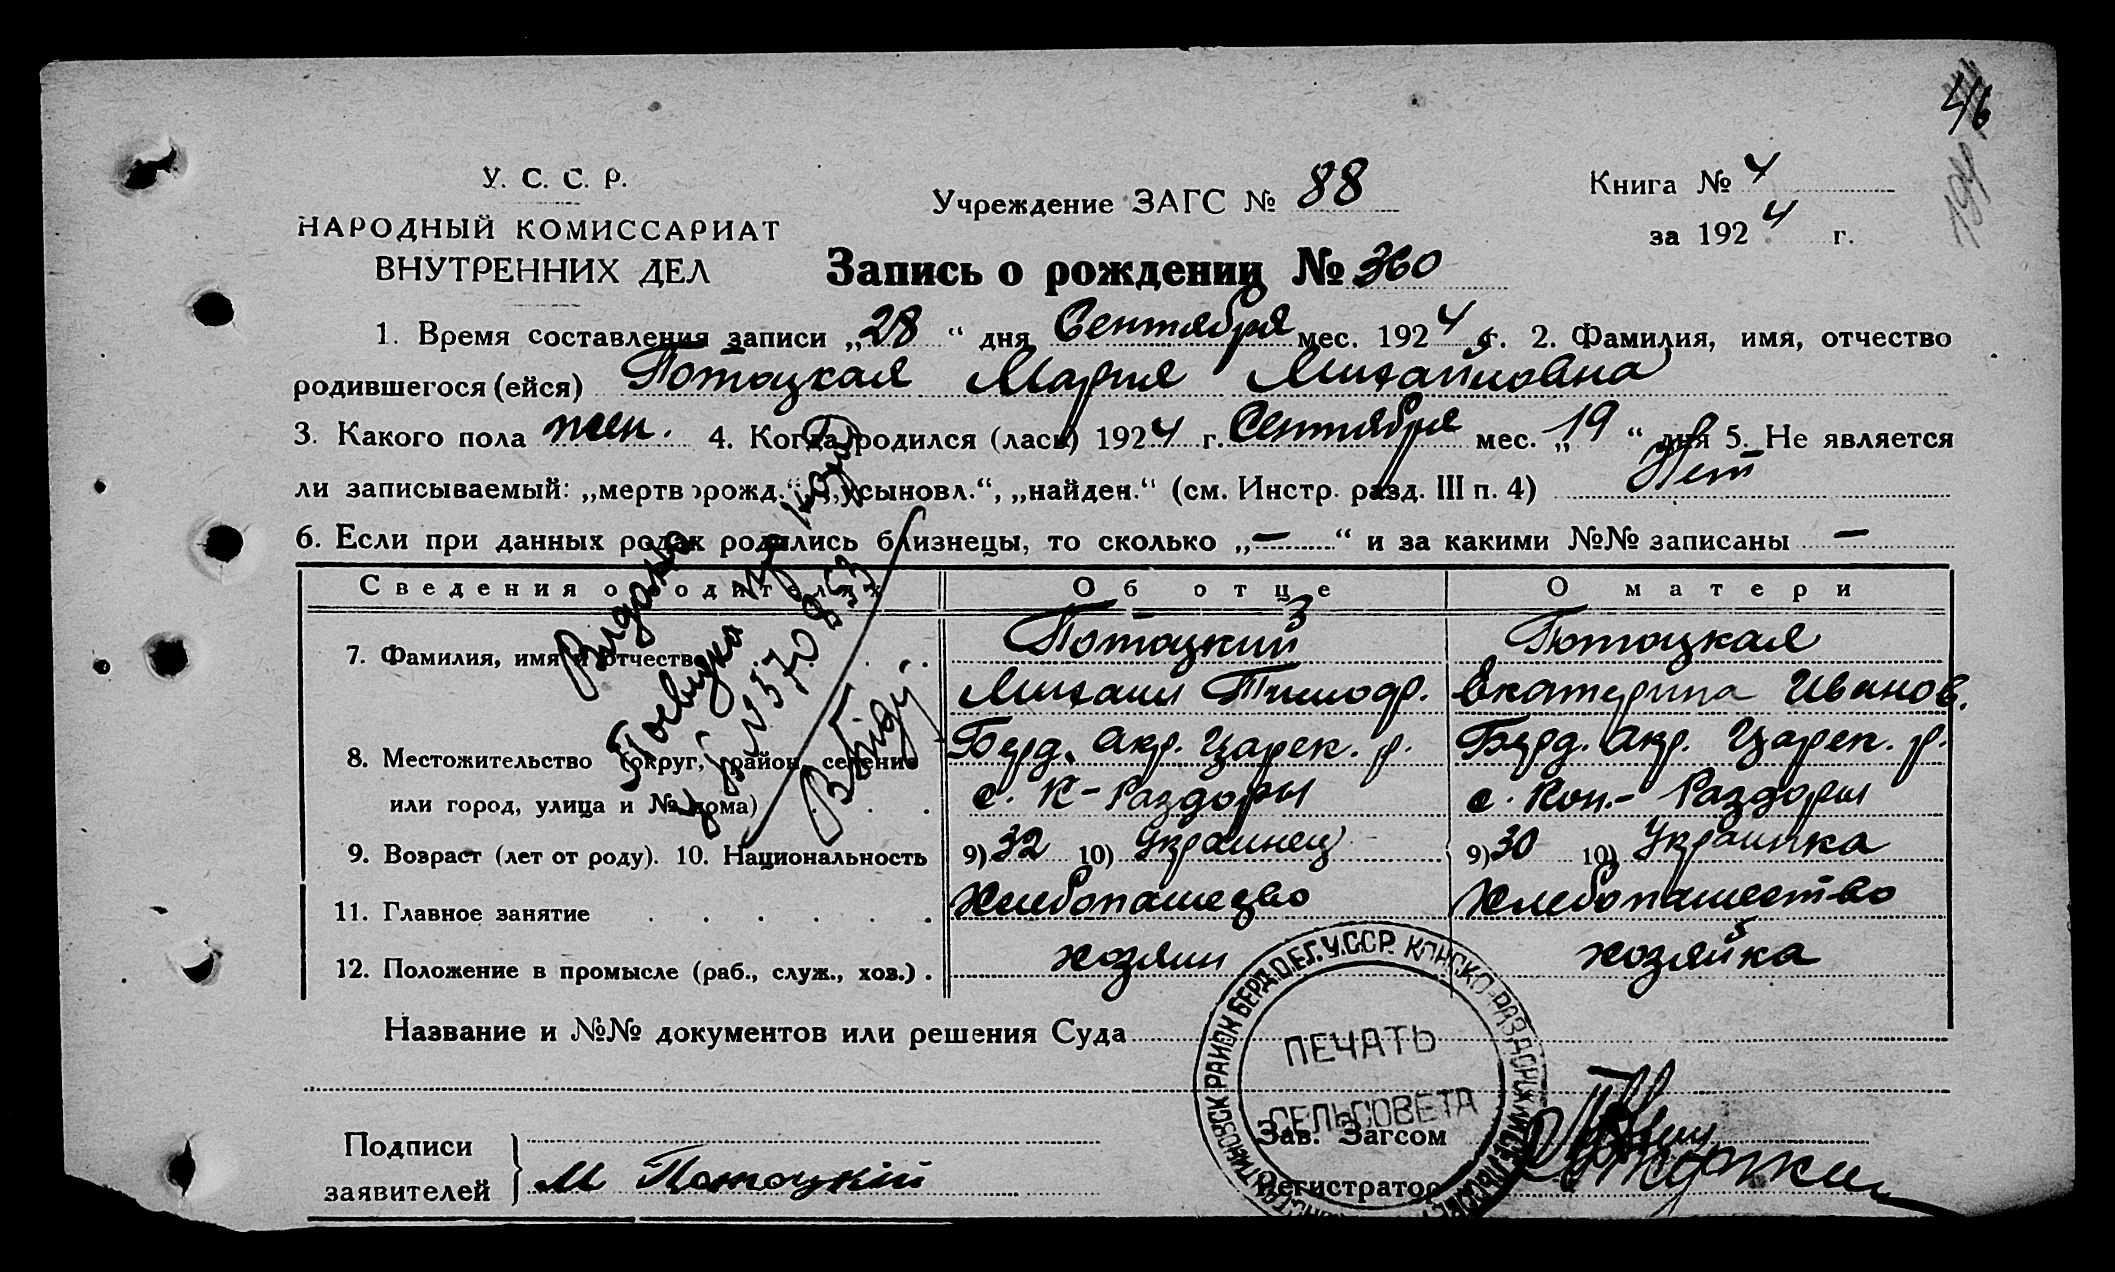 У. С. С. Р.
НАРОДНЫЙ КОМИССАРИАТ
ВНУТРЕННИХ ДЕЛ
Учреждение ЗАГС № 88
Книга № 4
за 1924 г.
Запись о рождении № 360
1. Время составления записи „28“ дня Сентября мес. 1924 г. 2. Фамилия, имя, отчество
родившегося (ейся) Потоцкая Мария Михайловна
3. Какого пола жен. 4. Когда родился (лась) 1924 г. Сентября мес. „19“ дня 5. Не является
ли записываемый: „мертворожд.“, „усыновл.“, „найден.“ (см. Инстр. разд. III п. 4) Нет
6. Если при данных родах родились близнецы, то сколько „—“ и за какими №№ записаны —
Сведения о родителях Об отце О матери
7. Фамилия, имя и отчество Потоцкий Потоцкая
Михаил Тимоф. Екатерина Иванов.
8. Местожительство (округ, район, селение Берд. окр. Царек. р. Берд. окр. Царек. р.
или город, улица и № дома) с. К-Раздоры с. Кон.-Раздоры
9. Возраст (лет от роду). 10. Национальность 9) 32 10) Украинец 9) 30 10) Украинка
11. Главное занятие Хлебопашество Хлебопашество
12. Положение в промысле (раб., служ., хоз.) хозяин хозяйка
Название и №№ документов или решения Суда
Подписи
заявителей М Потоцкій
Зав. Загсом
Регистратор
ПЕЧАТЬ
СЕЛЬСОВЕТА